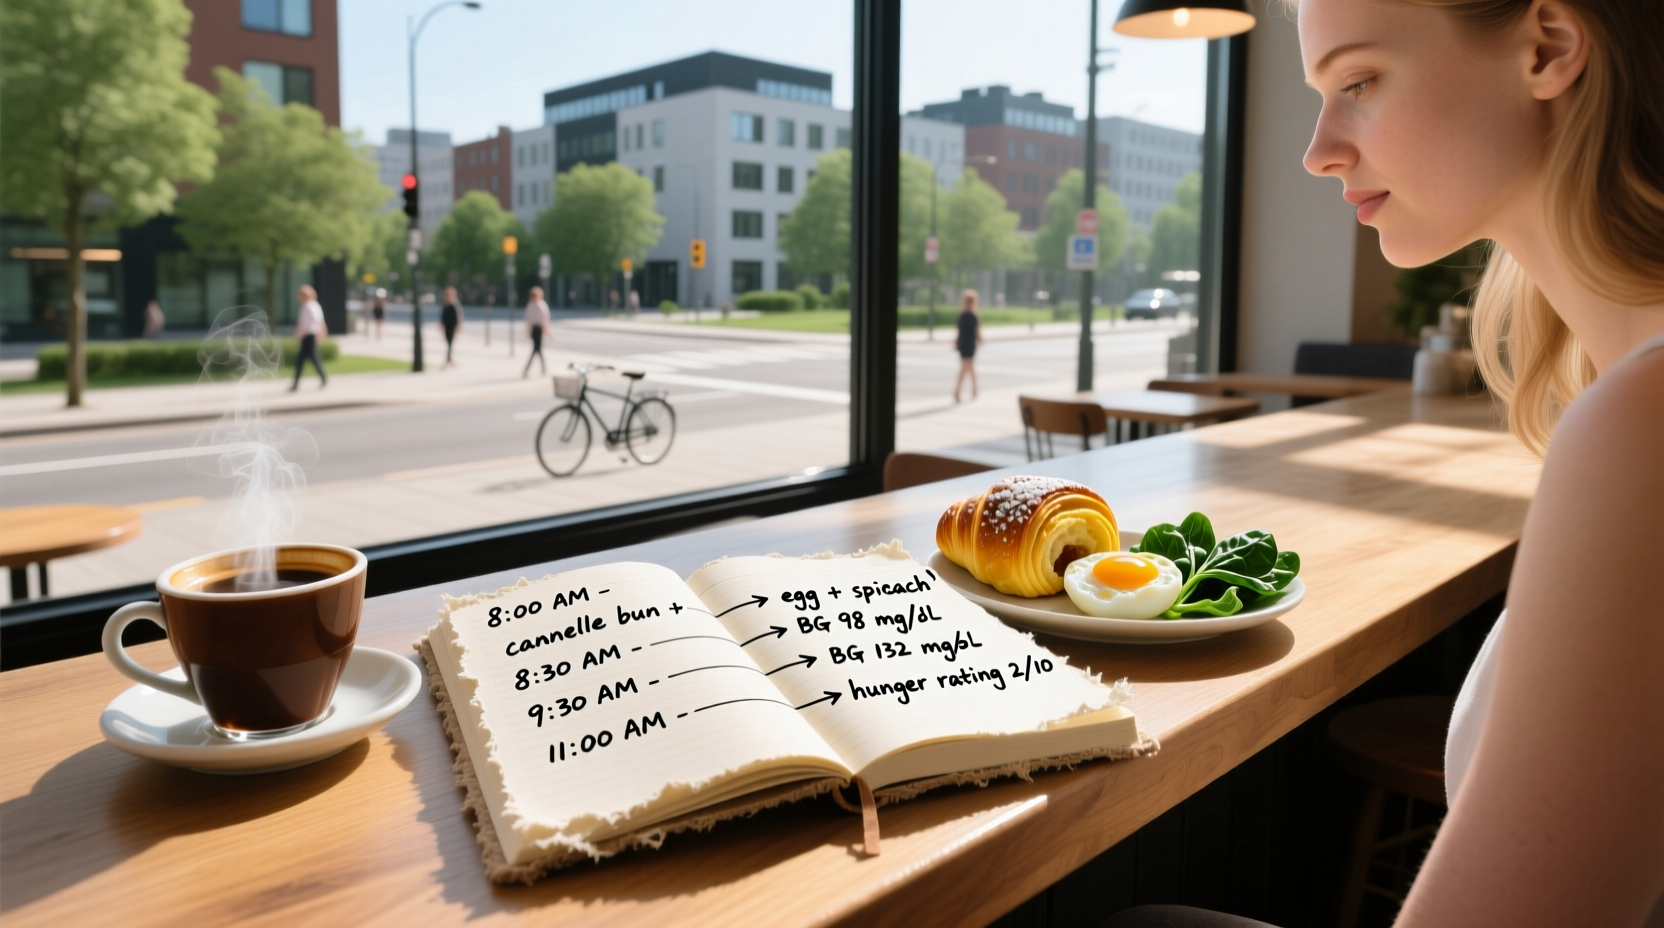 8:00 AM –
cannelle bun + → egg + spicach'
8:30 AM – → BG 98 mg/dL
9:30 AM – → BG 132 mg/bL
11:00 AM – → hunger rating 2/10